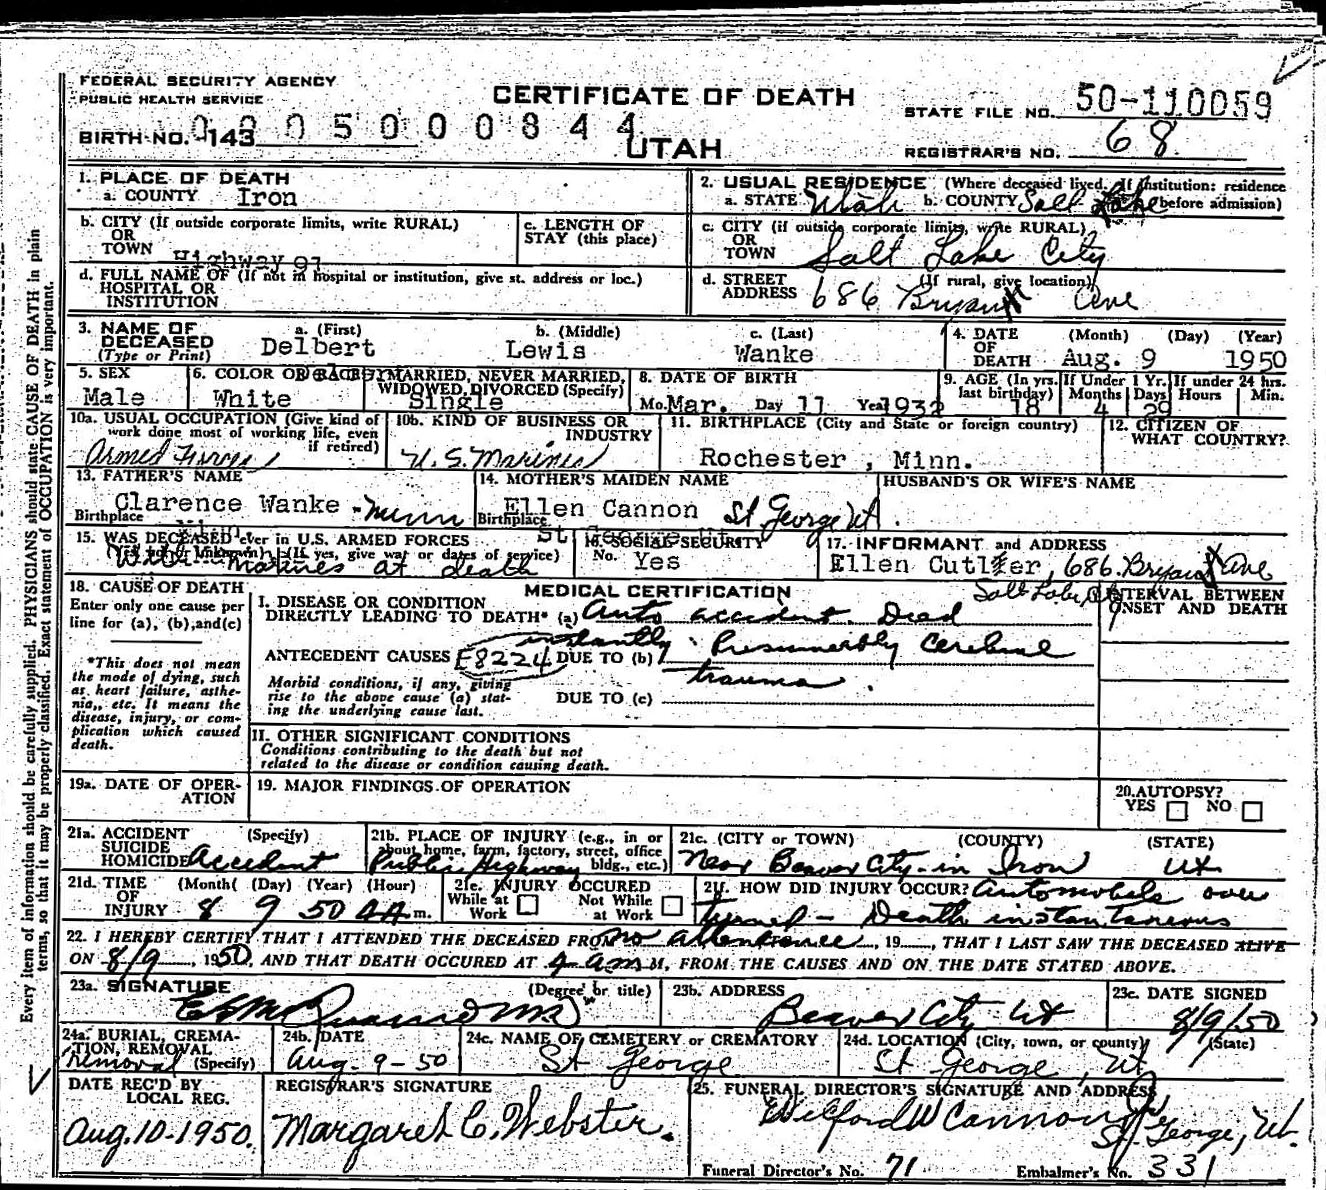 FEDERAL SECURITY AGENCY
PUBLIC HEALTH SERVICE
CERTIFICATE OF DEATH
STATE FILE NO. 50-110059
BIRTH NO. 143 0005000844
UTAH
REGISTRAR'S NO. 68
1. PLACE OF DEATH
a. COUNTY Iron
2. USUAL RESIDENCE (Where deceased lived. If institution: residence before admission)
a. STATE Utah b. COUNTY Salt Lake
b. CITY (If outside corporate limits, write RURAL)
OR
TOWN Highway 91
c. LENGTH OF
STAY (this place)
c. CITY (if outside corporate limits, write RURAL)
OR
TOWN Salt Lake City
d. FULL NAME OF (If not in hospital or institution, give st. address or loc.)
HOSPITAL OR
INSTITUTION
d. STREET (If rural, give location)
ADDRESS 686 Bryan Ave
3. NAME OF DECEASED (Type or Print)
a. (First) Delbert
b. (Middle) Lewis
c. (Last) Wanke
4. DATE OF DEATH (Month) (Day) (Year)
Aug. 9 1950
5. SEX
Male
6. COLOR OR RACE
White
7. MARRIED, NEVER MARRIED,
WIDOWED, DIVORCED (Specify)
Single
8. DATE OF BIRTH
Mo. Mar. Day 11 Year 1932
9. AGE (In yrs. last birthday) 18
If Under 1 Yr. Months 4 Days 29
If under 24 hrs. Hours Min.
10a. USUAL OCCUPATION (Give kind of work done most of working life, even if retired)
Armed Forces
10b. KIND OF BUSINESS OR INDUSTRY
U. S. Marines
11. BIRTHPLACE (City and State or foreign country)
Rochester, Minn.
12. CITIZEN OF WHAT COUNTRY?
13. FATHER'S NAME
Clarence Wanke - Minn
Birthplace
14. MOTHER'S MAIDEN NAME
Ellen Cannon St George Ut.
Birthplace
HUSBAND'S OR WIFE'S NAME
15. WAS DECEASED ever in U.S. ARMED FORCES
(If yes, give war or dates of service)
With Marines at death
16. SOCIAL SECURITY
No. Yes
17. INFORMANT and ADDRESS
Ellen Cutler, 686 Bryan Ave
Salt Lake City
18. CAUSE OF DEATH
Enter only one cause per line for (a), (b), and (c)
*This does not mean the mode of dying, such as heart failure, asthenia, etc. It means the disease, injury, or complication which caused death.
MEDICAL CERTIFICATION
INTERVAL BETWEEN
ONSET AND DEATH
I. DISEASE OR CONDITION
DIRECTLY LEADING TO DEATH* (a) Auto accident. Dead
instantly. Presumably Cerebral
ANTECEDENT CAUSES E8224 DUE TO (b)
trauma.
Morbid conditions, if any, giving rise to the above cause (a) stating the underlying cause last.
DUE TO (c)
II. OTHER SIGNIFICANT CONDITIONS
Conditions contributing to the death but not related to the disease or condition causing death.
19a. DATE OF OPERATION
19. MAJOR FINDINGS OF OPERATION
20. AUTOPSY?
YES NO
21a. ACCIDENT (Specify)
SUICIDE
HOMICIDE Accident
21b. PLACE OF INJURY (e.g., in or about home, farm, factory, street, office bldg., etc.)
Public Highway
21c. (CITY or TOWN) (COUNTY) (STATE)
Near Beaver City - in Iron Ut
21d. TIME OF INJURY (Month) (Day) (Year) (Hour)
8 9 50 4 A m.
21e. INJURY OCCURED
While at Work
Not While at Work
21f. HOW DID INJURY OCCUR? Automobile over
turned - Death instantaneous
22. I HEREBY CERTIFY THAT I ATTENDED THE DECEASED FROM no attendance, 19___, THAT I LAST SAW THE DECEASED ALIVE
ON 8/9, 1950, AND THAT DEATH OCCURED AT 4 a m M, FROM THE CAUSES AND ON THE DATE STATED ABOVE.
23a. SIGNATURE (Degree or title)
23b. ADDRESS
Beaver City Ut
23c. DATE SIGNED
8/9/50
24a. BURIAL, CREMATION, REMOVAL (Specify)
Removal
24b. DATE
Aug. 9-50
24c. NAME OF CEMETERY or CREMATORY
St George
24d. LOCATION (City, town, or county) (State)
St George, Ut.
DATE REC'D BY LOCAL REG.
Aug. 10-1950.
REGISTRAR'S SIGNATURE
Margaret C. Webster.
25. FUNERAL DIRECTOR'S SIGNATURE AND ADDRESS
Wilford W Cannon Jr
St. George, Ut.
Funeral Director's No. 71
Embalmer's No. 331
Every item of information should be carefully supplied. PHYSICIANS should state CAUSE OF DEATH in plain
terms, so that it may be properly classified. Exact statement of OCCUPATION is very important.